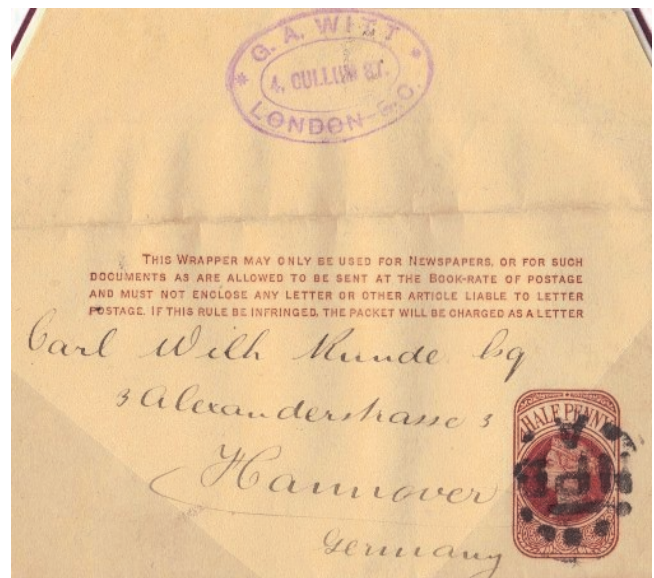 * G. A. WITT *
4, CULLUM ST.
LONDON E.C.
THIS WRAPPER MAY ONLY BE USED FOR NEWSPAPERS, OR FOR SUCH
DOCUMENTS AS ARE ALLOWED TO BE SENT AT THE BOOK-RATE OF POSTAGE
AND MUST NOT ENCLOSE ANY LETTER OR OTHER ARTICLE LIABLE TO LETTER
POSTAGE. IF THIS RULE BE INFRINGED, THE PACKET WILL BE CHARGED AS A LETTER
Carl Wilh Kunde Esq
3 Alexanderstrasse 3
Hannover
Germany
HALFPENNY